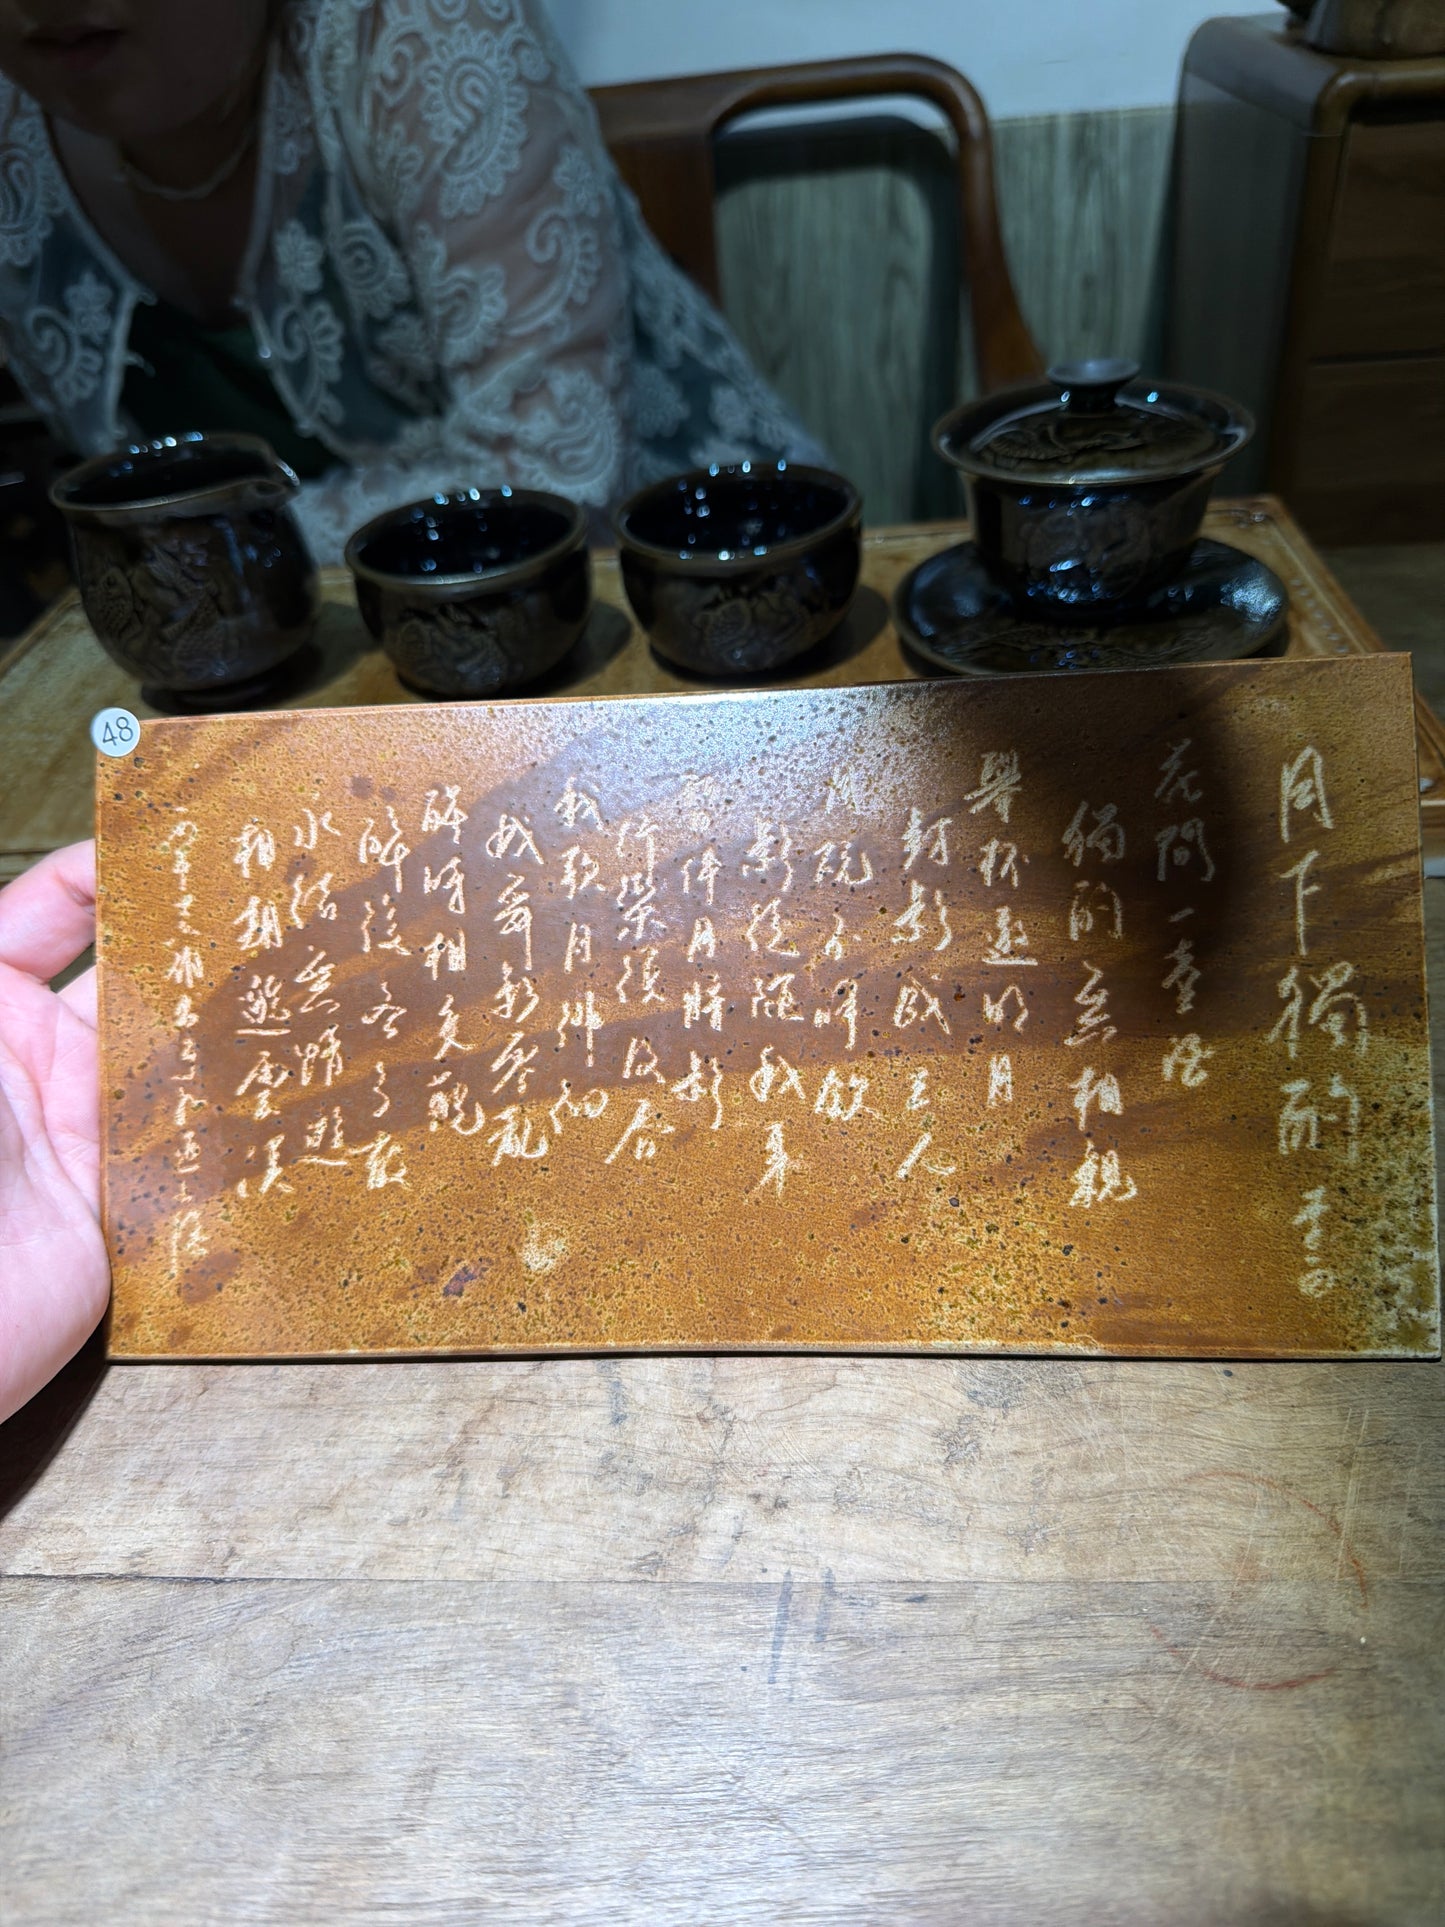 月下獨酌
花間一壺酒
獨酌無相親
舉杯邀明月
對影成三人
月既不解飲
影徒隨我身
暫伴月將影
行樂須及春
我歌月徘徊
我舞影零亂
醒時相交歡
醉後各分散
永結無情遊
相期邈雲漢
48